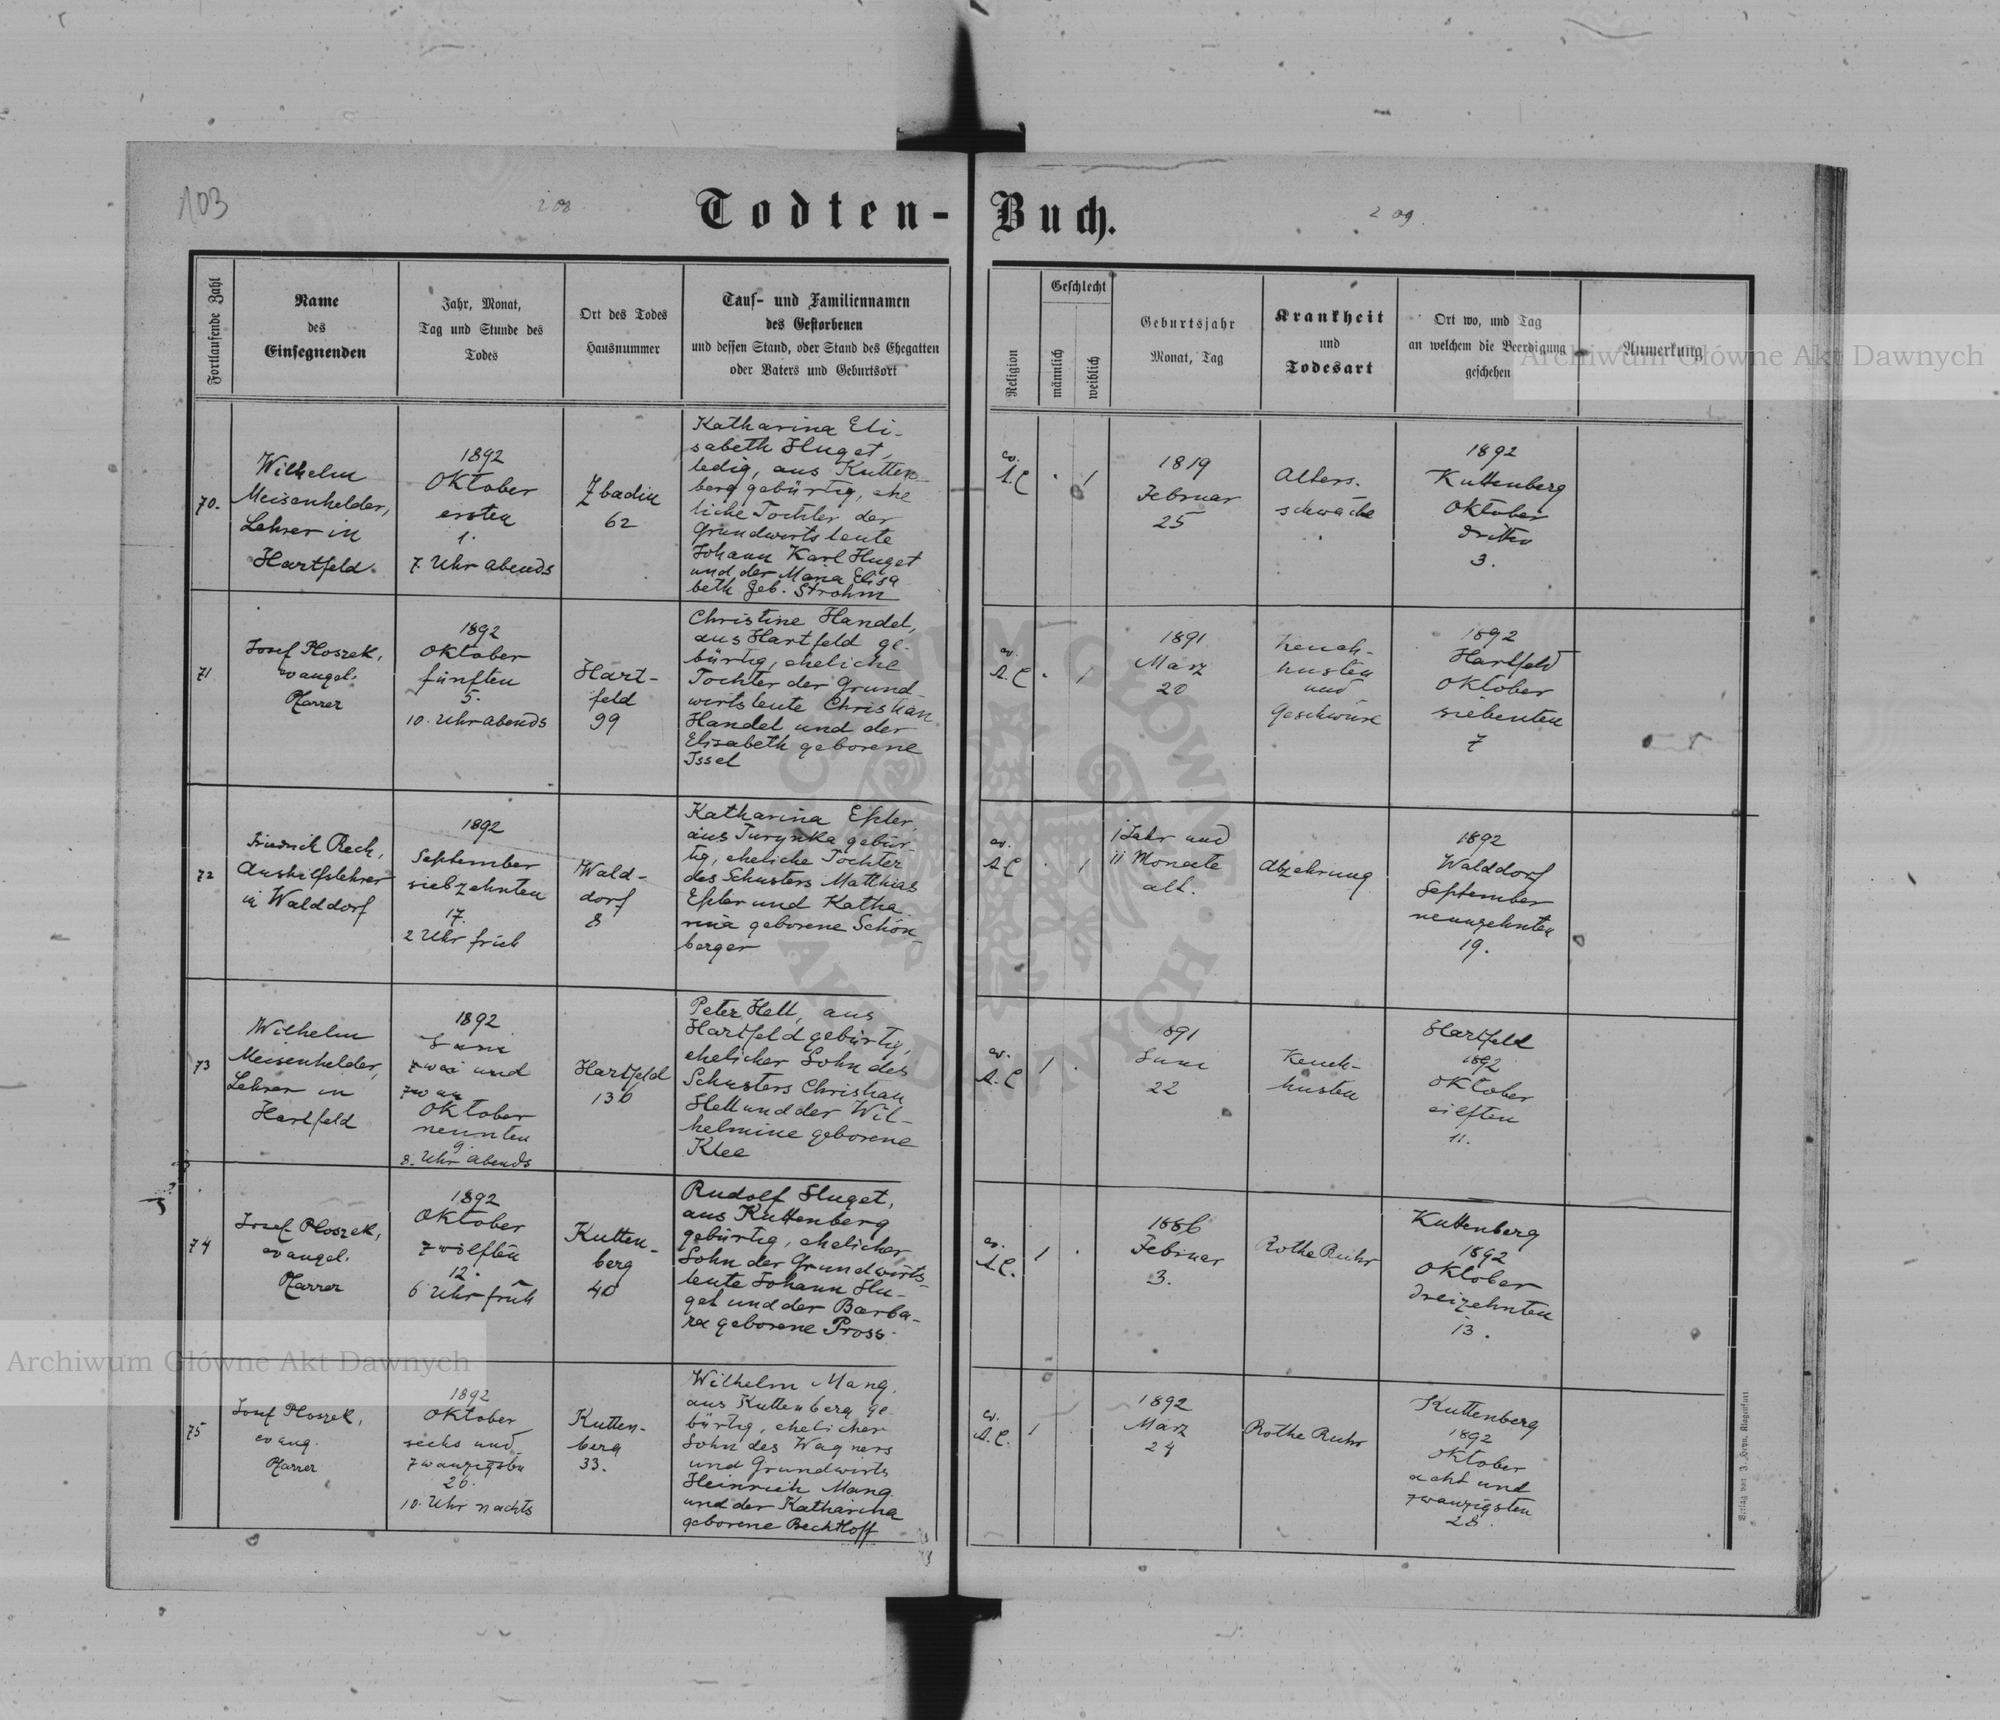 103
208
Todten-Buch.
209
Fortlaufende Zahl
Name
des
Einsegnenden
Jahr, Monat,
Tag und Stunde des
Todes
Ort des Todes
Hausnummer
Tauf- und Familiennamen
des Gestorbenen
und dessen Stand, oder Stand des Ehegatten
oder Vaters und Geburtsort
Religion
Geschlecht
männlich
weiblich
Geburtsjahr
Monat, Tag
Krankheit
und
Todesart
Ort wo, und Tag
an welchem die Beerdigung
geschehen
Anmerkung
Archiwum Główne Akt Dawnych
70.
Wilhelm
Meisenhelder,
Lehrer in
Hartfeld.
1892
Oktober
ersten
1.
7 Uhr abends
Zbadin
62
Katharina Eli-
sabeth Huget,
ledig, aus Kutten-
berg gebürtig, ehe
liche Tochter der
Grundwirtsleute
Johann Karl Huget
und der Maria Elisa
beth geb. Strohm
ev.
A.C
1
1819
Februar
25
Alters-
schwäche
1892
Kuttenberg
Oktober
dritten
3.
71
Josef Ploszek,
evangel.
Pfarrer
1892
Oktober
fünften
5.
10. Uhr abends
Hart-
feld
99
Christine Handel,
aus Hartfeld ge-
bürtig, eheliche
Tochter der Grund-
wirtsleute Christian
Handel und der
Elisabeth geborene
Issel
ev.
A.C
1
1891
März
20
Keuch-
husten
und
Geschwüre
1892
Hartfeld
Oktober
siebenten
7
72
Friedrich Rech,
Aushilfslehrer
in Walddorf
1892
September
siebzehnten
17.
2 Uhr früh
Wald-
dorf
8
Katharina Eßler,
aus Turynka gebür-
tig, eheliche Tochter
des Schusters Matthias
Eßler und Katha-
rina geborene Schön-
berger
ev.
A.C
1
1 Jahr und
11 Monate
alt.
Abzehrung
1892
Walddorf
September
neunzehnten
19.
73
Wilhelm
Meisenhelder,
Lehrer in
Hartfeld
1892
Juni
zwei und
zwan
Oktober
neunten
9.
8. Uhr abends
Hartfeld
136
Peter Hell, aus
Hartfeld gebürtig,
ehelicher Sohn des
Schusters Christian
Hell und der Wil-
helmine geborene
Klee
ev.
A.C
1
891
Juni
22
Keuch-
husten
Hartfeld
1892
Oktober
eilften
11.
74
Josef Ploszek,
evangel.
Pfarrer
1892
Oktober
zwölften
12.
6 Uhr früh
Kutten-
berg
40
Rudolf Huget,
aus Kuttenberg
gebürtig, ehelicher
Sohn der Grundwirts-
leute Johann Hu-
get und der Barba-
ra geborene Pross.
ev.
A.C.
1
1886
Februar
3.
Rothe Ruhr
Kuttenberg
1892
Oktober
dreizehnten
13.
Archiwum Główne Akt Dawnych
75
Josef Ploszek,
evang.
Pfarrer
1892
Oktober
sechs und
zwanzigsten
26.
10. Uhr nachts
Kutten-
berg
33.
Wilhelm Mang,
aus Kuttenberg ge-
bürtig, ehelicher
Sohn des Wagners
und Grundwirts
Heinrich Mang
und der Katharina
geborene Bechtloff
ev.
A.C.
1
1892
März
24
Rothe Ruhr
Kuttenberg
1892
Oktober
acht und
zwanzigsten
28.
Verlag von J. Heyn, Klagenfurt
ARCHIWUM GŁÓWNE AKT DAWNYCH